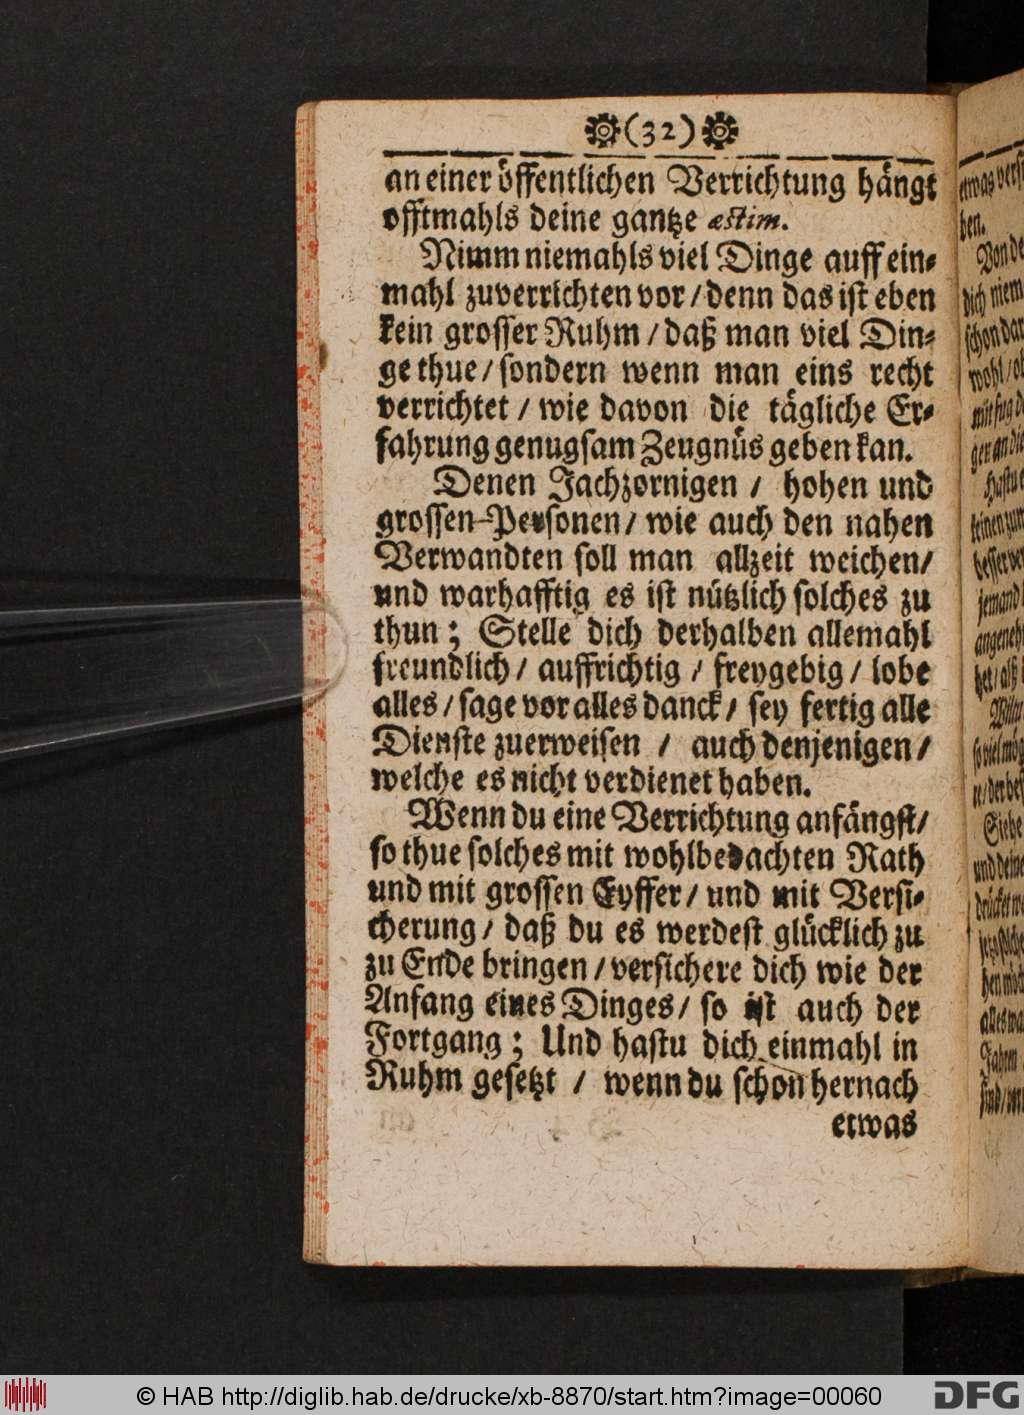 (32)
an einer öffentlichen Verrichtung hängt
offtmahls deine gantze æstim.
Nimm niemahls viel Dinge auff ein-
mahl zuverrichten vor / denn das ist eben
kein grosser Ruhm / daß man viel Din-
ge thue / sondern wenn man eins recht
verrichtet / wie davon die tägliche Er-
fahrung genugsam Zeugnüs geben kan.
Denen Jachzornigen / hohen und
grossen-Personen / wie auch den nahen
Verwandten soll man allzeit weichen /
und warhafftig es ist nützlich solches zu
thun ; Stelle dich derhalben allemahl
freundlich / auffrichtig / freygebig / lobe
alles / sage vor alles danck / sey fertig alle
Dienste zuerweisen / auch denjenigen /
welche es nicht verdienet haben.
Wenn du eine Verrichtung anfängst /
so thue solches mit wohlbedachten Rath
und mit grossen Eyffer / und mit Versi-
cherung / daß du es werdest glücklich zu
zu Ende bringen / versichere dich wie der
Anfang eines Dinges / so ist auch der
Fortgang ; Und hastu dich einmahl in
Ruhm gesetzt / wenn du schon hernach
etwas
ben.
Von de
dich niem
schon dar
wohl / ob
mit fug d
ger an die
Hastu e
besser ver
jemand
angeneh
het / alß
so viel mög
Siehe
und deine
alles wa
Jahren
© HAB http://diglib.hab.de/drucke/xb-8870/start.htm?image=00060
DFG